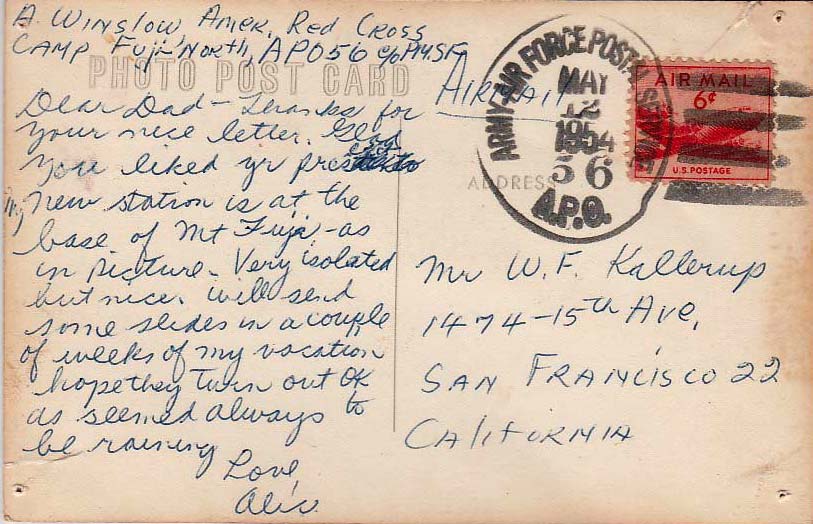 A. Winslow, Amer. Red Cross
Camp Fuji North, APO 56 c/o PM. SF
PHOTO POST CARD
Airmail
Dear Dad - Thanks for
your nice letter. Glad
you liked yr
My new station is at the
base of Mt Fuji - as
in picture. Very isolated
but nice. Will send
some slides in a couple
of weeks of my vacation
hope they turn out OK
as seemed always to
be raining
Love,
Alic
ARMY-AIR FORCE POSTAL SERVICE
MAY
12
1954
56
A.P.O.
AIR MAIL
6¢
U.S. POSTAGE
ADDRESS
Mr W. F. Kallerup
1474-15th Ave,
San Francisco 22
California